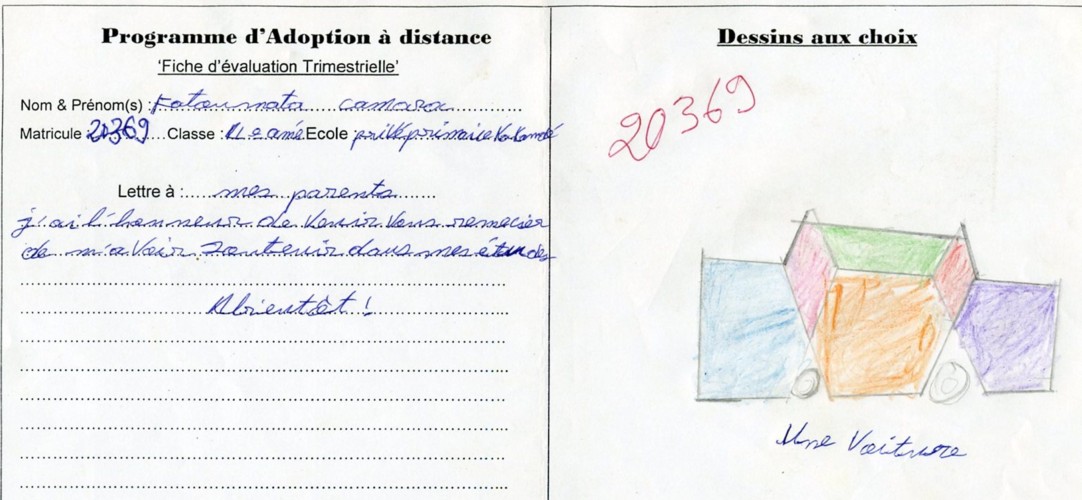 Programme d'Adoption à distance
'Fiche d'évaluation Trimestrielle'
Nom & Prénom(s) : Fatoumata camara
Matricule : 20369 Classe : année Ecole : privé primaire Kakandé
Lettre à : mes parents
j'ai l'honneur de venir vous remecier
de m'avoir soutenir dans mes études
Abientôt !
Dessins aux choix
20369
Une Voiture